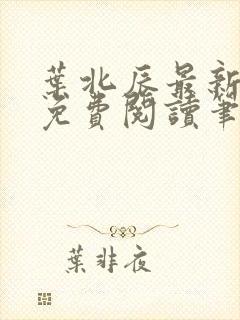 葉北辰最新
免費閱讀筆
葉非夜